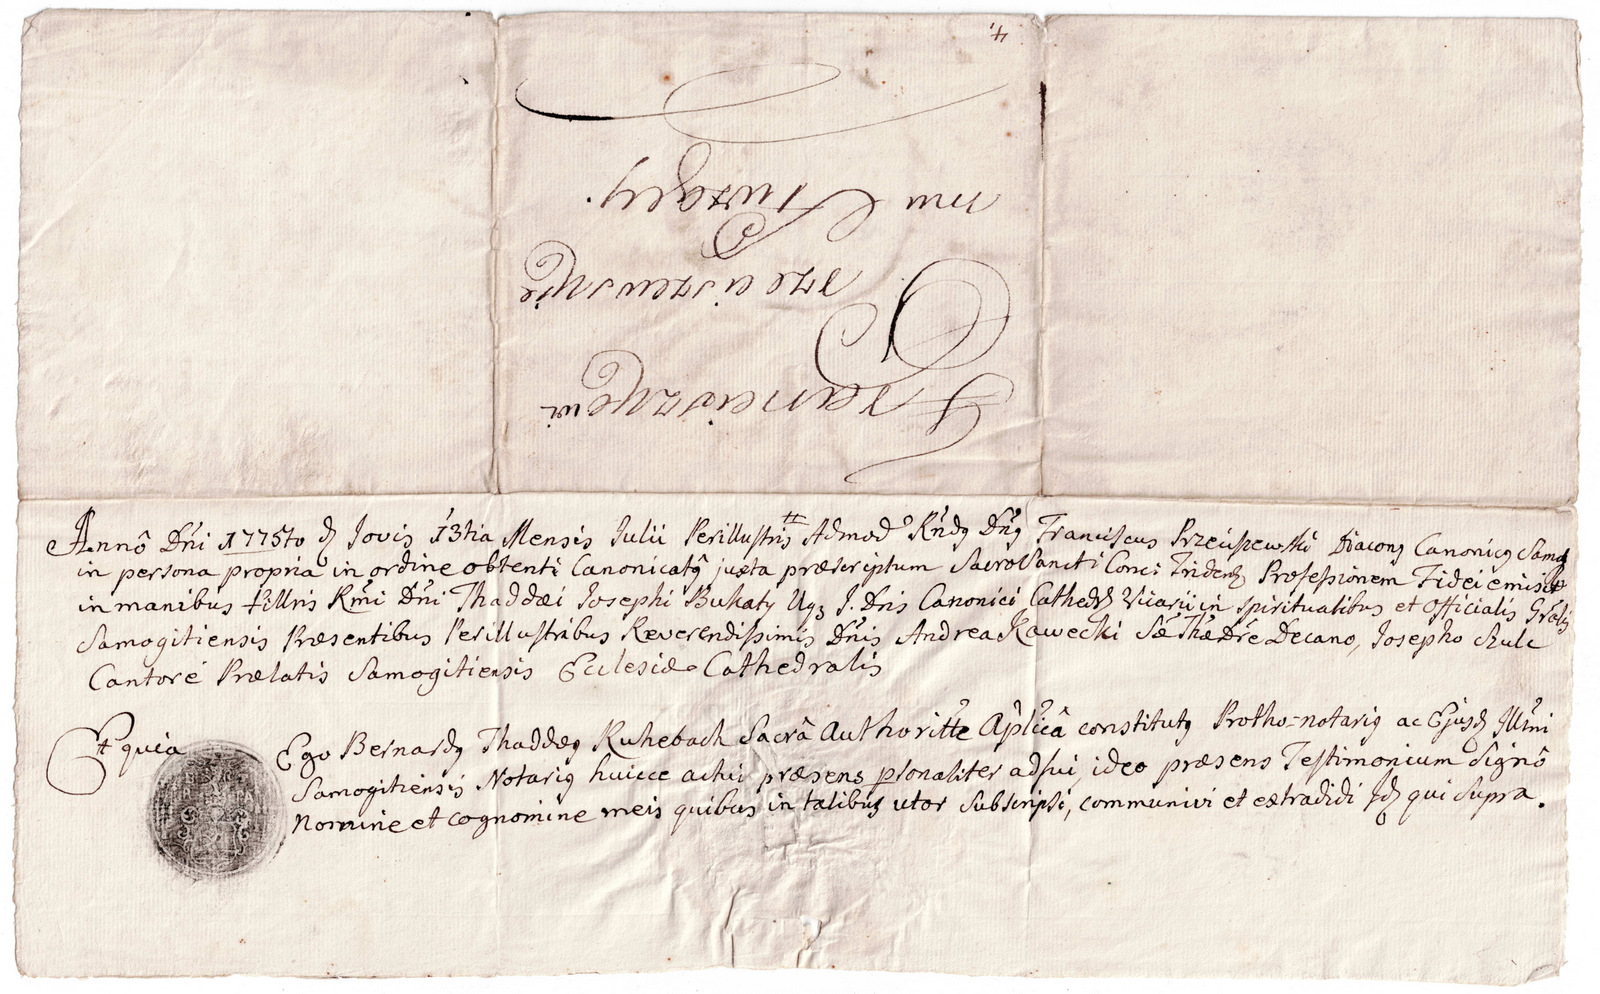 4.
Franciszkowi
Przeciszewskie
mu Xiurzęcy.
Annô Dñi 1775to ꝺ Jovis 13tia Mensis Julii Perillustris Admodo Rñdꝯ Dñꝯ Franciscus Przeciszewski Diaconꝯ Canonicꝯ Samog
in persona propria in ordine obtenti Canonicatꝯ juxta præscriptum SacroSancti Conci Tridenꝺ Professionem Fidei emisit
in manibus Illris Rm̃i Dñi Thaddæi Josephi Bukaty J. Dris Canonici Cathedꝺ Vicarii in spiritualibus et Officialis Gr̃alis
Samogitiensis Præsentibus Perillustribus Reverendissimis Dñis Andrea Kawecki Decano, Josepho Szulc
Cantore Prælatis Samogitiensis Ecclesiæ Cathedralis
Et quia Ego Bernardꝯ Thaddæꝯ Ruhebach Sacrâ Authoritte Ap̃licâ constitutꝯ Protho-notariꝯ ac Ejusꝺ Illm̃i
Samogitiensis Notariꝯ huicce actui præsens psonaliter adfui, ideo præsens Testimonium Signô
Nomine et cognomine meis quibus in talibus utor Subscripsi, communivi et extradidi Jꝺ qui supra.